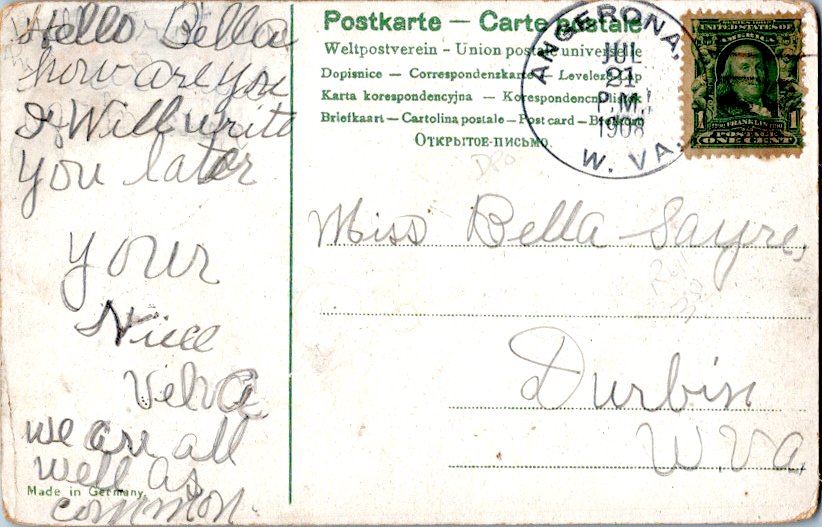 Hello Bella
how are you
I Will write
you later
your
Niece
Velva
we are all
well as
common.
Made in Germany.
Postkarte — Carte postale
Weltpostverein - Union postale universelle
Dopisnice — Correspondenzkarte — Levelező-lap
Karta korespondencyjna — Korespondenční lístek
Briefkaart — Cartolina postale — Post card — Brefkort
Открытое письмо.
ANGERONA,
JUL
21
P.M.
1908
W. VA.
SERIES 1902
UNITED STATES OF
AMERICA
FRANKLIN
1 1
POSTAGE
ONE CENT
DPO
Miss Bella Sayre,
Durbin
W. Va